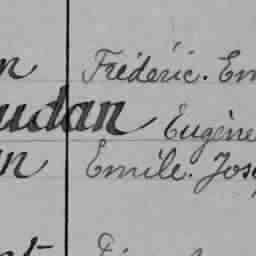 n Frédéric. Em
udan Eugène
n Emile. Jos